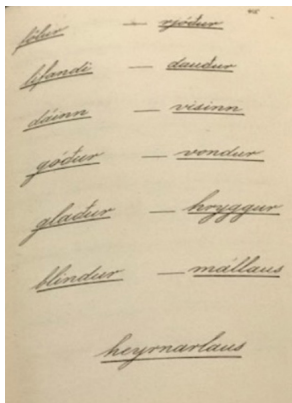 fölur — rjóður
lifandi — dauður
dáinn — visinn
góður — vondur
glaður — hryggur
blindur — mállaus
heyrnarlaus